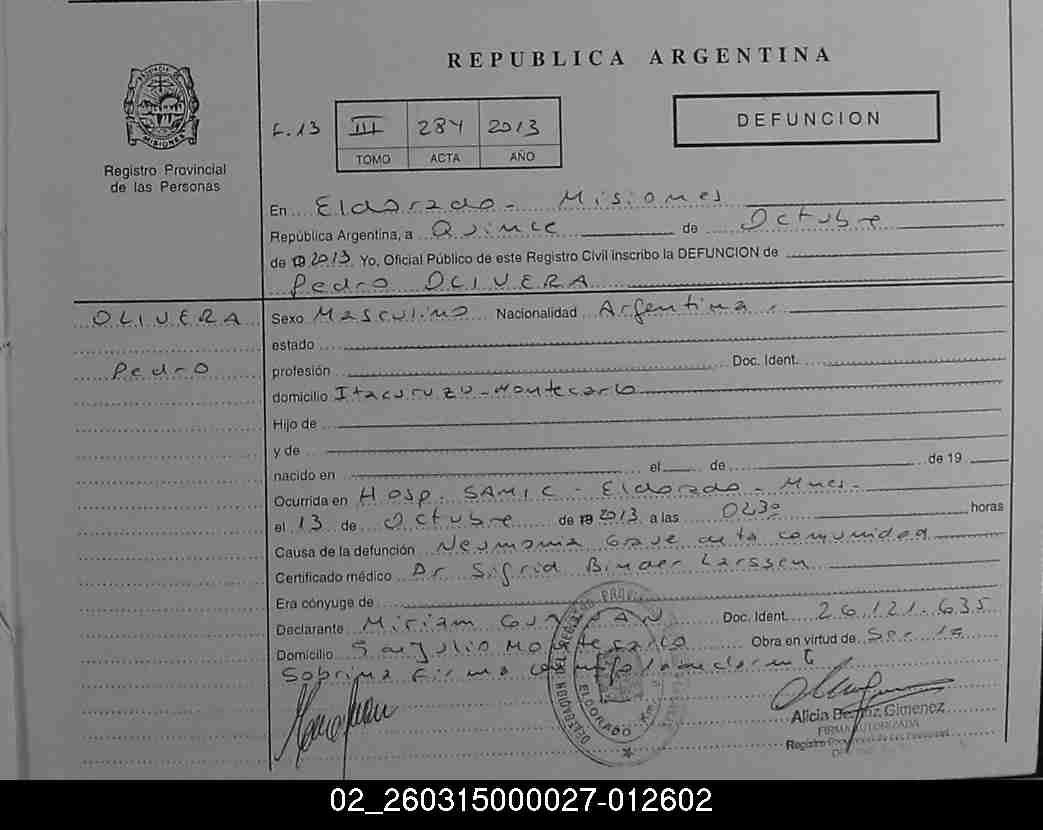 REPUBLICA ARGENTINA
F. 13 III 284 2013
TOMO ACTA AÑO
DEFUNCION
MISIONES
Registro Provincial
de las Personas
En Eldorado - Misiones
República Argentina, a Quince de Octubre
de 2013 Yo, Oficial Público de este Registro Civil inscribo la DEFUNCION de
Pedro OLIVERA
OLIVERA
Pedro
Sexo Masculino Nacionalidad Argentina
estado
profesión Doc. Ident.
domicilio Itacuruzu - Montecarlo
Hijo de
y de
nacido en el de de 19
Ocurrida en Hosp. SAMIC - Eldorado - Mnes -
el 13 de Octubre de 19 2013 a las 0230 horas
Causa de la defunción Neumonia Grave de la comunidad
Certificado médico Dr Sigrid Binder Larssen
Era cónyuge de
Declarante Miriam Doc. Ident. 26.121.635
Domicilio 5 Montecarlo Obra en virtud de Ser la
Sobrina Firma
ELDORADO
Alicia Gimenez
FIRMA AUTORIZADA
02_260315000027-012602